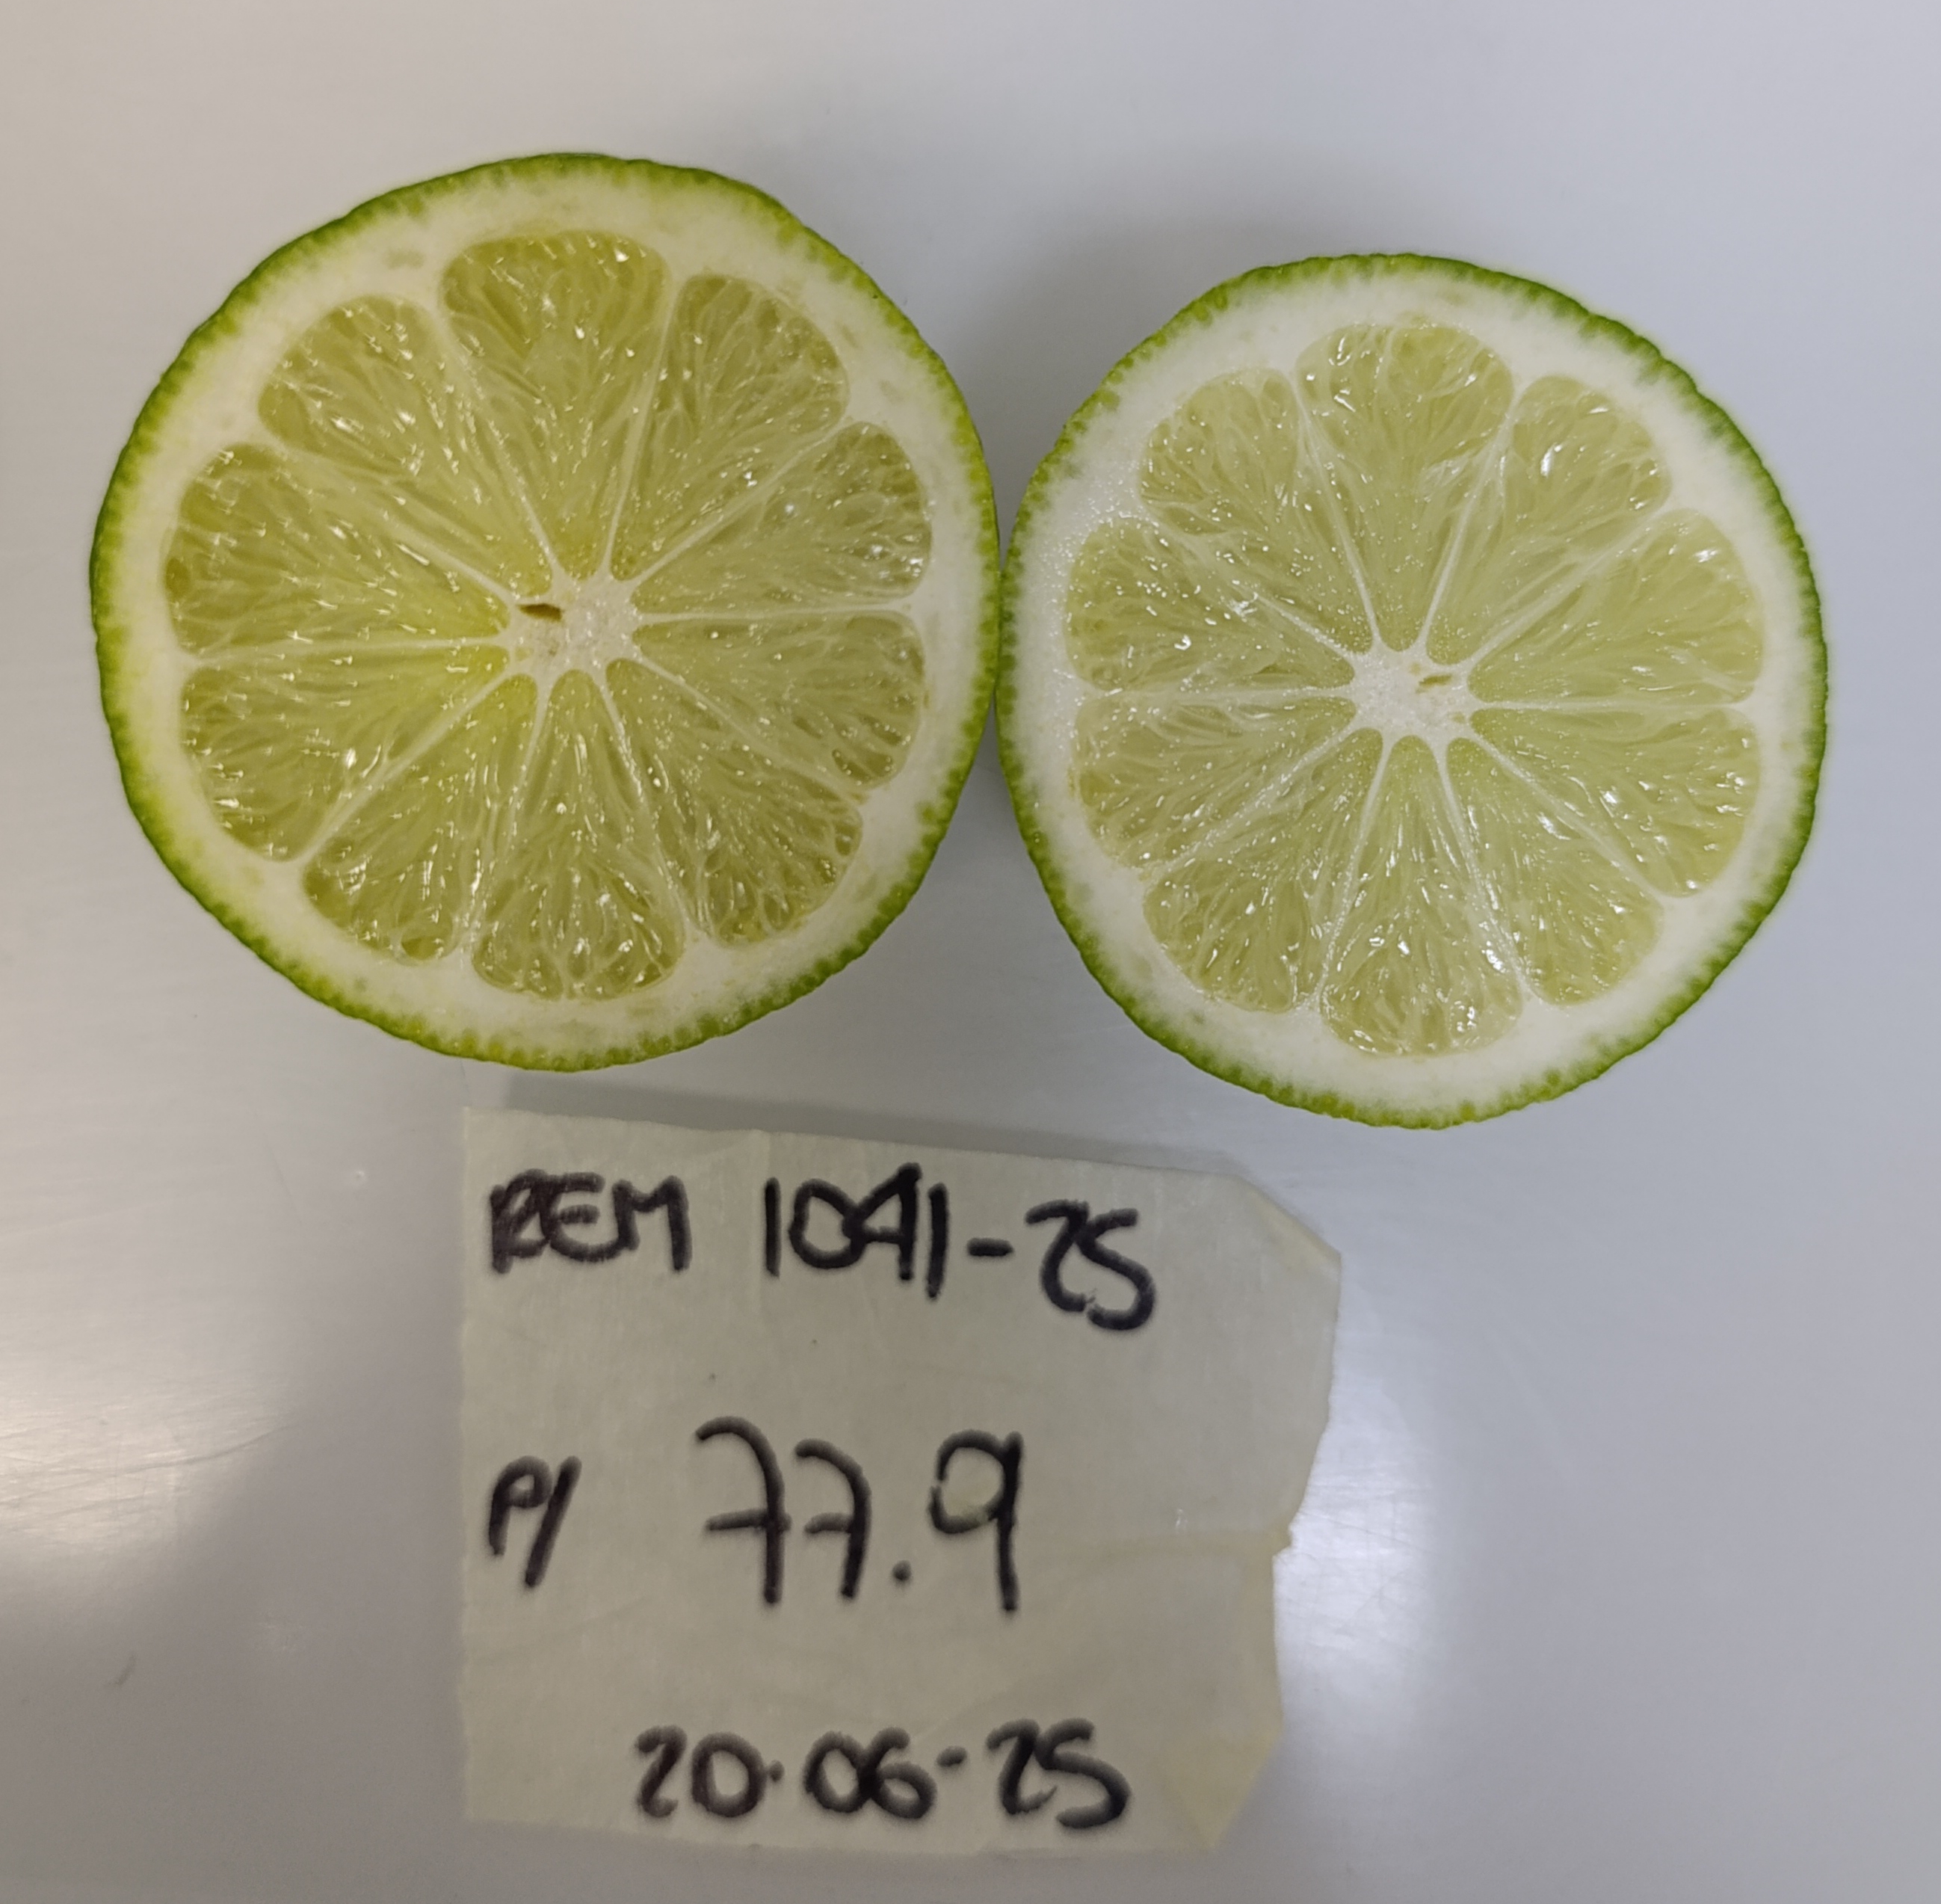 REM 1041-25
P/ 77.9
20.06-25